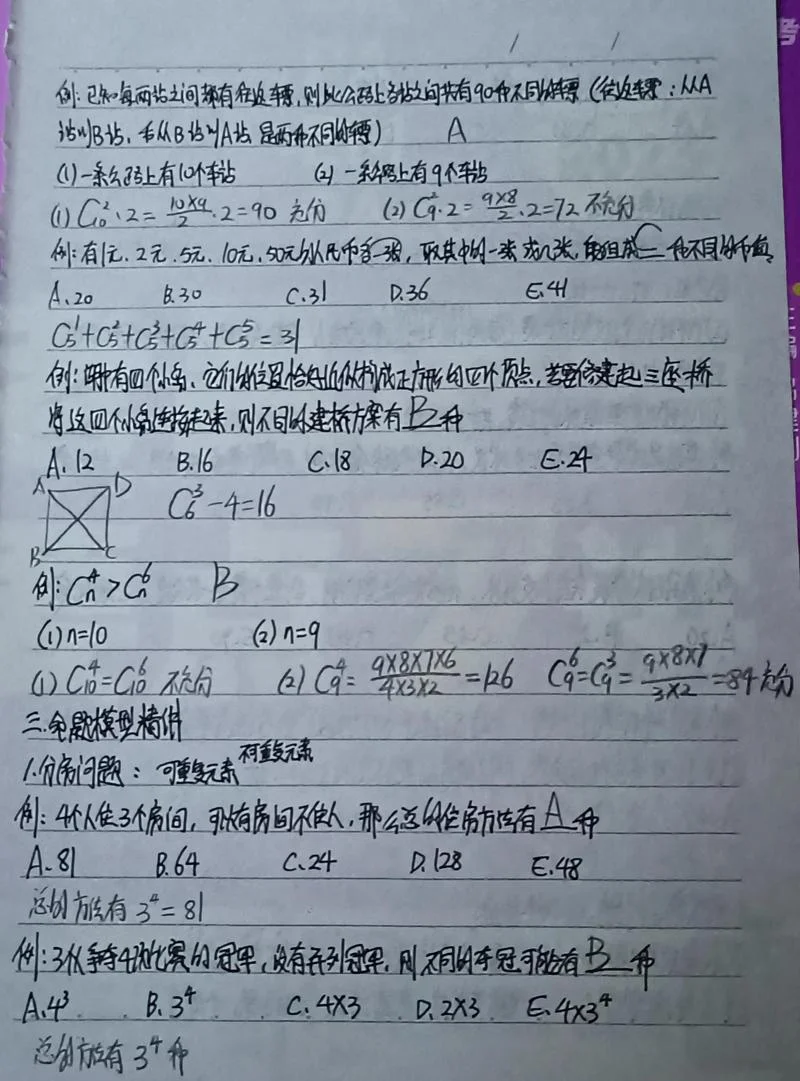 例:已知每两站之间都有往返车票,则此公路上各站之间共有90种不同的车票(往返车票:从A
站到B站,和从B站到A站是两种不同的车票) A
(1)一条公路上有10个车站 (2)一条公路上有9个车站
(1) C₁₀²·2=10×9/2·2=90 充分 (2) C₉²·2=9×8/2·2=72 不充分
例:有1元、2元、5元、10元、50元的人民币各一张,取其中的一张或几张,能组成C种不同的币值
A.20 B.30 C.31 D.36 E.41
C₅¹+C₅²+C₅³+C₅⁴+C₅⁵=31
例:湖中有四个小岛,它们的位置恰好近似构成正方形的四个顶点,若要修建起三座桥
将这四个小岛连接起来,则不同的建桥方案有B种
A.12 B.16 C.18 D.20 E.24
A D
C₆³-4=16
B C
例:Cₙ⁴>Cₙ⁶ B
(1) n=10 (2) n=9
(1) C₁₀⁴=C₁₀⁶ 不充分 (2) C₉⁴=9×8×7×6/4×3×2=126 C₉⁶=C₉³=9×8×7/3×2=84 充分
三.命题模型精讲
1.分房问题:可重复元素 不可重复元素
例:4个人住3个房间,可以有房间不住人,那么总的住房方法有A种
A.81 B.64 C.24 D.128 E.48
总的方法有3⁴=81
例:3人争夺4项比赛的冠军,没有并列冠军,则不同的夺冠可能有B种
A.4³ B.3⁴ C.4×3 D.2×3 E.4×3⁴
总的方法有3⁴种
考